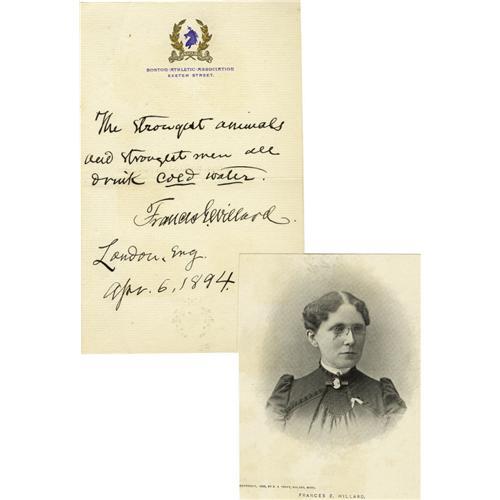 BOSTON·ATHLETIC·ASSOCIATION
EXETER STREET.
The strongest animals
and strongest men all
drink cold water.
Frances E. Willard.
London, Eng.
Apr. 6, 1894.
FRANCES E. WILLARD.